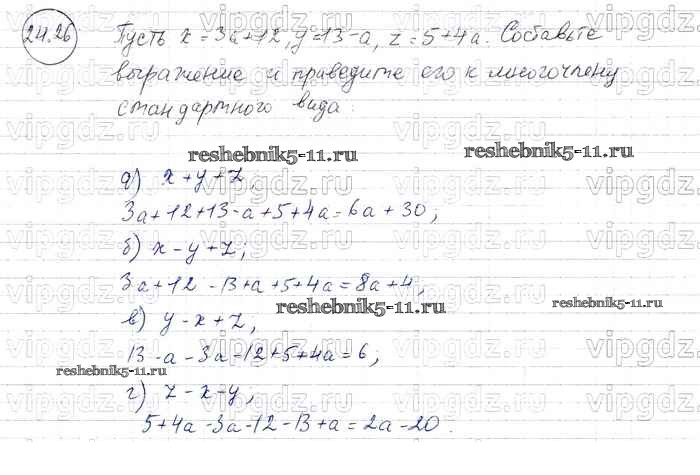 24.26
Пусть x = 3a+12, y=13-a, z = 5+4a. Составьте
выражение и приведите его к многочлену
стандартного вида:
reshebnik5-11.ru
reshebnik5-11.ru
а) x+y+z,
3a+12+13-a+5+4a=6a+30;
б) x-y+z;
3a+12-13+a+5+4a=8a+4;
reshebnik5-11.ru
в) y-x+z,
13-a-3a-12+5+4a=6;
reshebnik5-11.ru
г) z-x-y,
5+4a-3a-12-13+a=2a-20.
vipgdz.ru vipgdz.ru vipgdz.ru vipgdz.ru